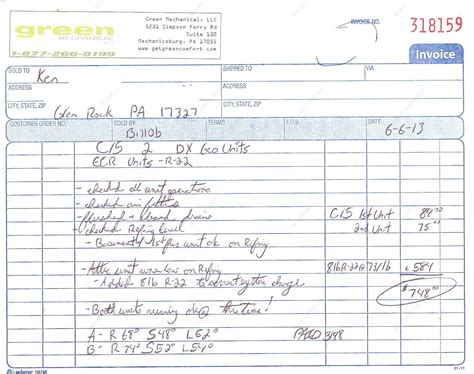 green
MECHANICAL LLC
1-877-266-8199
Green Mechanical, LLC
2 Simpson Ferry Rd
Suite 150
Mechanicsburg, PA 17055
www.getgreencomfort.com
INVOICE NO. 318159
Invoice
SOLD TO Ken
SHIPPED TO
VIA
ADDRESS
ADDRESS
CITY, STATE, ZIP Glen Rock PA 17327
CITY, STATE, ZIP
CUSTOMER ORDER NO.
SOLD BY
TERMS
F.O.B.
DATE 6-6-13
C/S 2 DX Geo Units
ECR Units - R-22
- checked all unit operations
- checked air filters
- flushed & drains
- checked Refrig level
- Basement/1st flr unit ok on Refrig
- Attic unit was low on Refrig
- Added 8lb R-22 to system charge
- Both units running ok @ this time!
A- R 68° S 48° L 52°
B- R 74° S 52° L 54°
C/S 1st Unit 89.00
2nd Unit 75.00
8lb R-22 @ 73/lb 584
$748.00
PAID